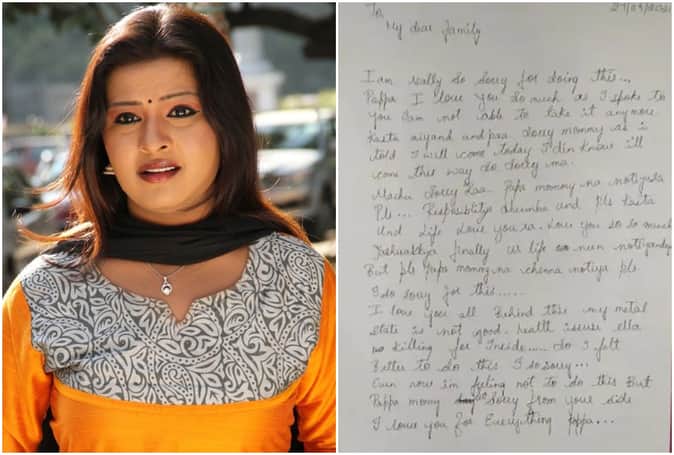 To,
27/09/202
My dear family
I am really so sorry for doing this...
Pappa I love you so much as I spoke to
you I am not able to take it anymore.
Kasta aiyand and paa sorry mommy as i
told I will come today I din know i'll
come this way so sorry ma.
Machu sorry kaa. Papa mommy na
Pls... dhumba and pls kasta
und life Love you ra. Love you so so much
finally ur life nan
But pls Papa mommy na chenna notiya pls
I so sorry for this......
I love you all Behind this my metal
state is not good. health issuse ella
killing for Inside...... So I felt
Better to do this I so sorry...
Even now i'm feling not to do this But
Pappa mommy sorry from your side
I love you for Everything Pappa...